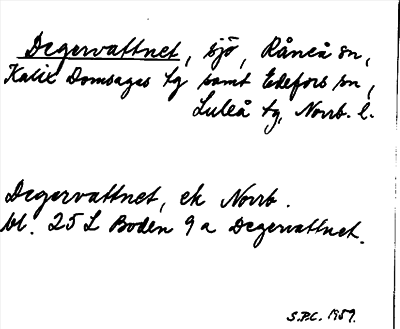 Degervattnet, sjö, Råneå sn,
Kalix Domsagas tg samt Edefors sn,
Luleå tg, Norrb. l.
Degervattnet, ek Norrb.
bl. 25 L Boden 9 a Degervattnet.
S.P.C. 1987.